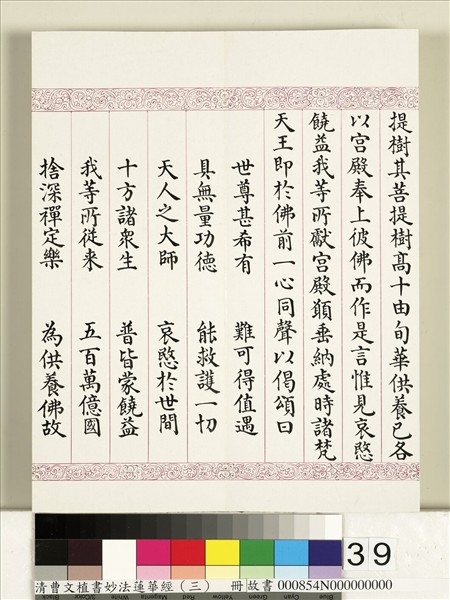 提樹其菩提樹高十由旬華供養已各
以宮殿奉上彼佛而作是言惟見哀愍
饒益我等所獻宮殿願垂納處時諸梵
天王即於佛前一心同聲以偈頌曰
世尊甚希有 難可得值遇
具無量功德 能救護一切
天人之大師 哀愍於世間
十方諸眾生 普皆蒙饒益
我等所從來 五百萬億國
捨深禪定樂 為供養佛故
39
清曹文植書妙法蓮華經（三） 冊 故書 000854N000000000